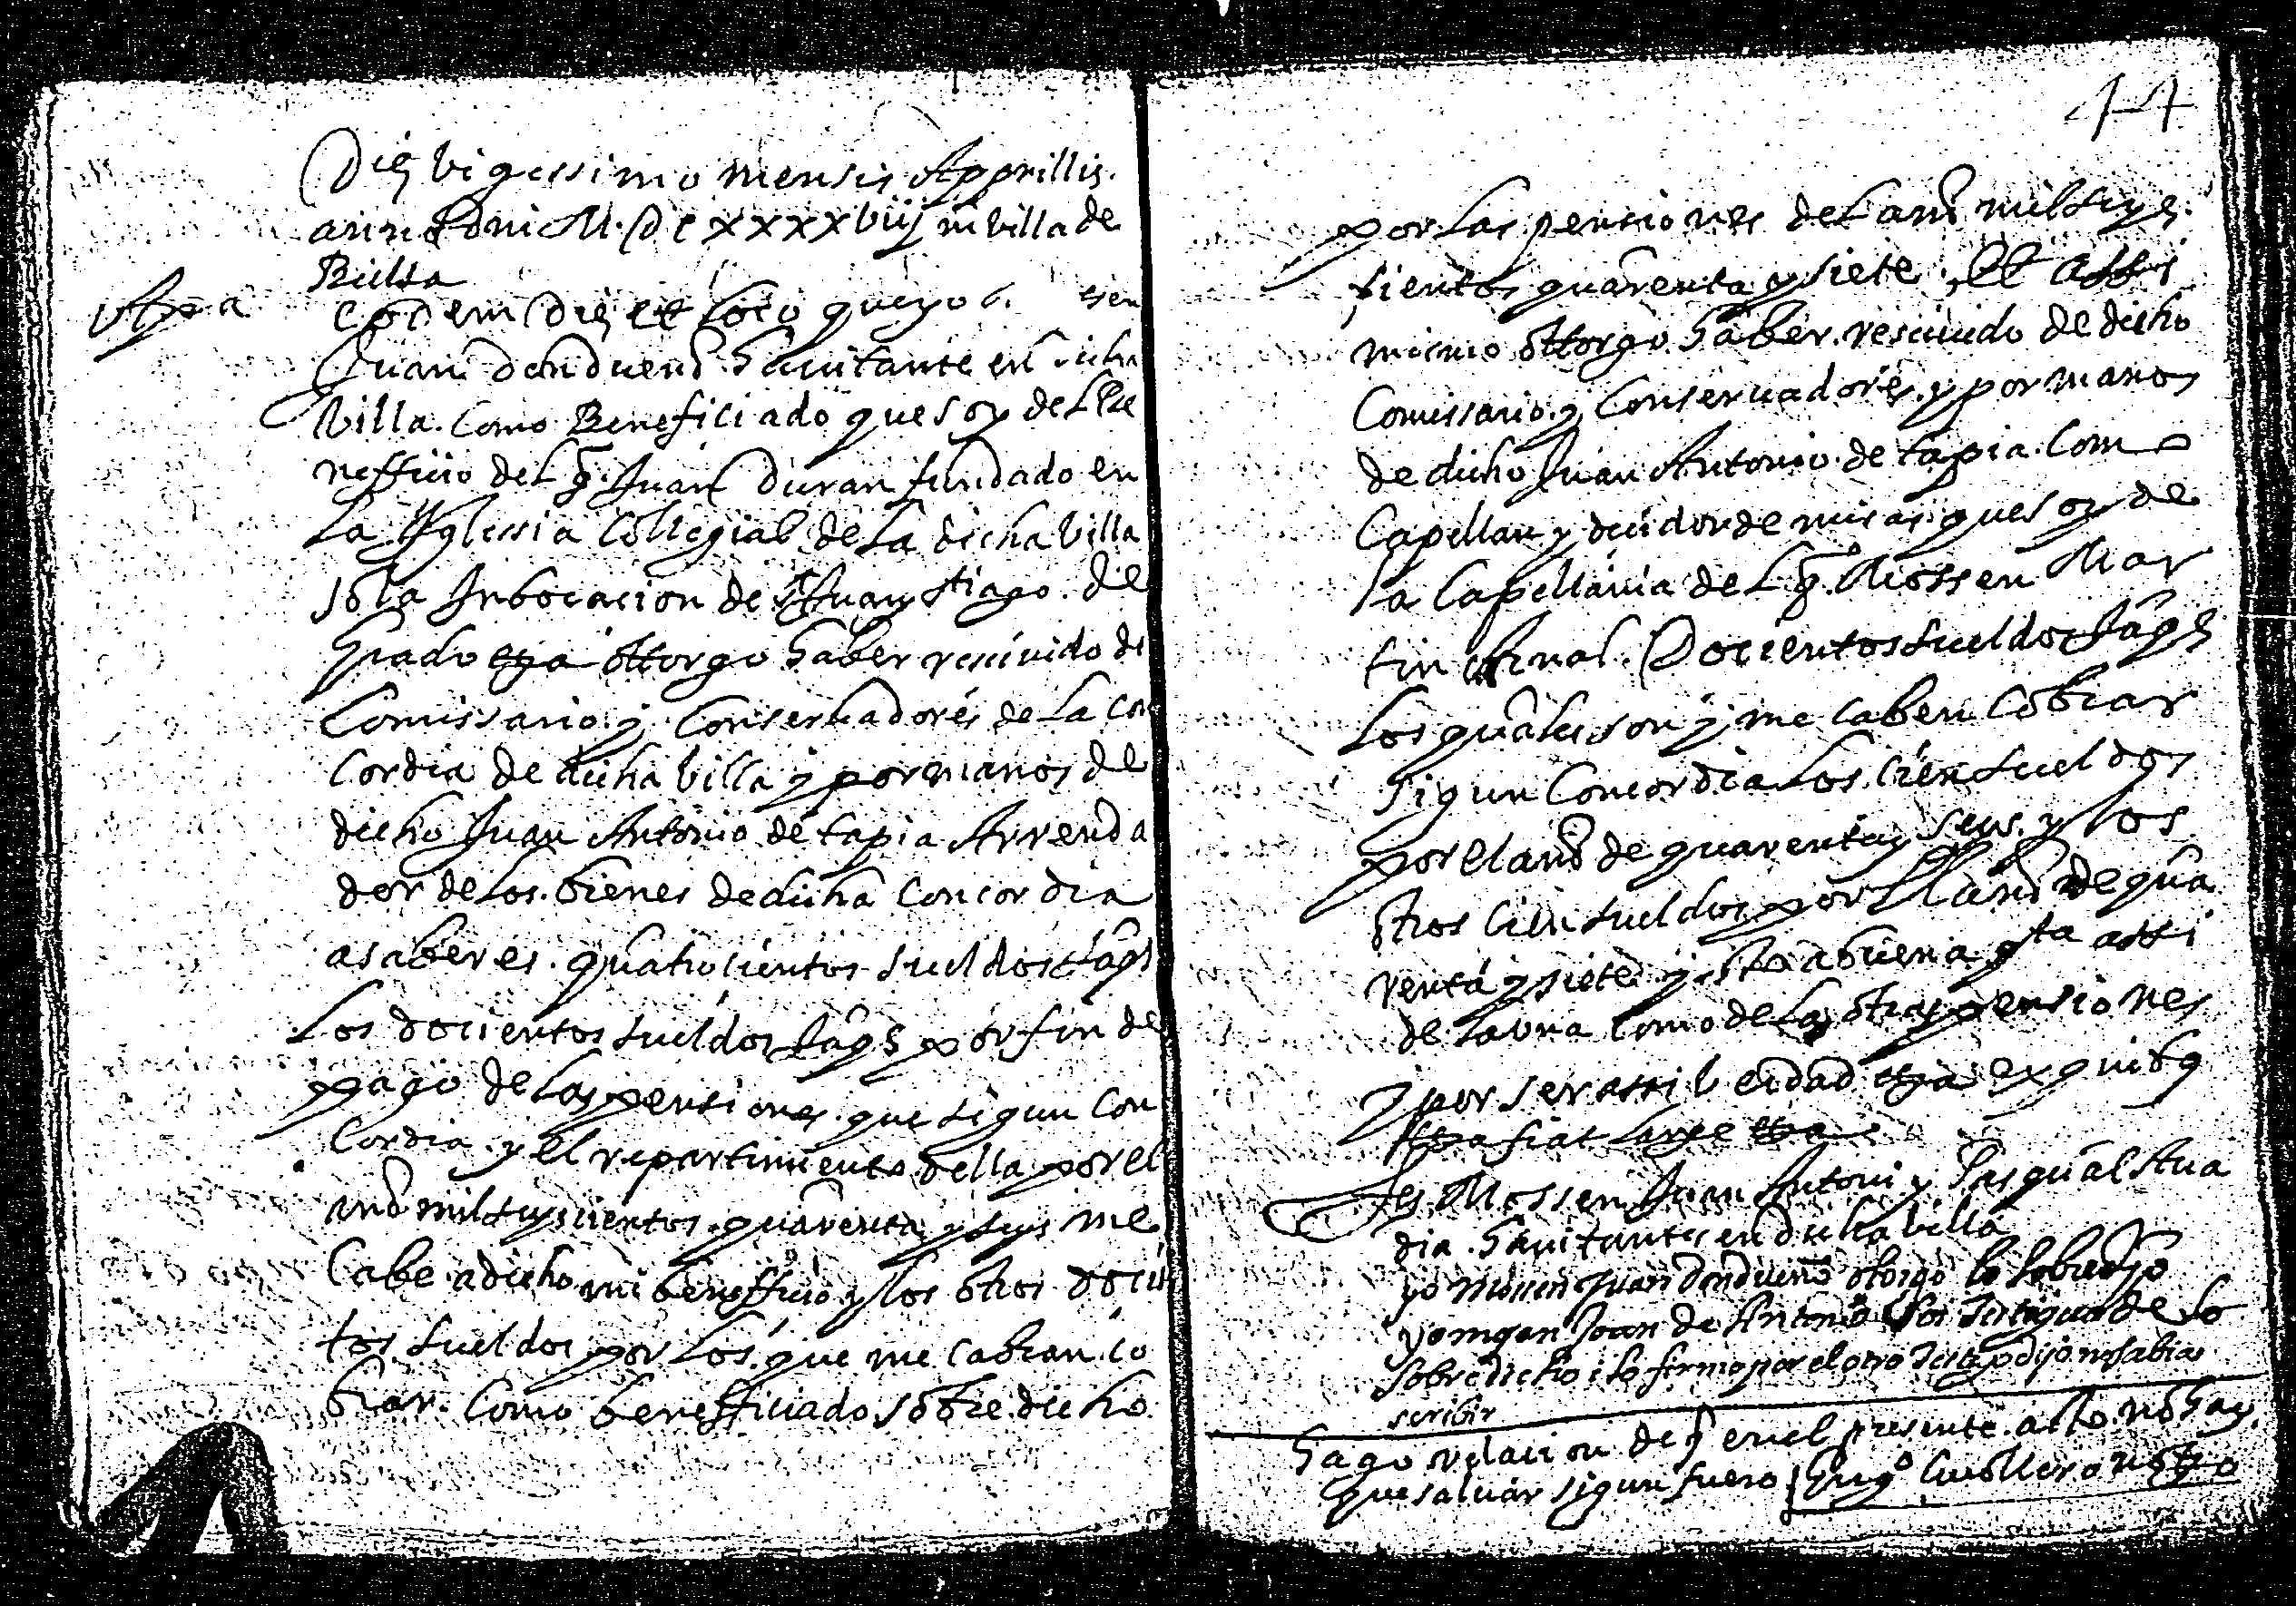 Die vigessimo mensis Apprillis.
anno Dni M. DCXXXXVIIJ in villa de
Bielsa
Apa
eodem die et loco que yo
Juan Donduend havitante en dicha
Villa. Como Beneficiado que soy del Be
nefficio del q.º Juan Duran fundado en
La Yglessia Collegial de La dicha villa
so la Inbocacion de St Juan y Stiago. de
Grado etza ottorgo haber rescivido de
Comissario y Conserbadores de La con
cordia de dicha villa y por manos de
dicho Juan Antonio de tapia Arrenda
dor de Los bienes de dicha Concordia
a saber es. quatrocientos sueldos Jaqs
Los docientos sueldos Jaqs por fin de
pago de Las pensiones. que sigun Con
Cordia. y el repartimiento della por el
ano mil seyscientos quarenta y seys me
Cabe a dicho mi benefficio y los otros docie
tos sueldos por Los que me cabian co
brar. Como benefficiado sobre dicho
44
por Las pensiones del ano mil seys.
sientos quarenta y siete, Et assi
mismo ottorgo haber rescivido de dicho
Comissario y Conservadores y por manos
de dicho Juan Antonio de tapia. Como
Capellan y decidor de misas que soy de
la Capellania del q.º Mossen Mar
tin Arnal. Docientos sueldos Jaqs
Los quales son y me caben Cobrar
sigun Concordia Los. cien sueldos
por el ano de quarenta y seys. y los
otros cien sueldos por el ano de qua
renta y siete y abuena qta assi
de la una Como de Las otras pensiones
y por ser assi verdad etza ex quibq
etza fiat large etza
Ts Mossen Juan Antoni y Pasqual Ana
dia. havitantes en dicha villa
yo mossen Juan Donduend otorgo lo sobredicho
yo mosen Joan de Antoni soi Testiguo de lo
sobredicho i lo firmo por el otro Testigo dijo no sabia
scribir
Hago relacion de q en el presente acto no hay
que salvar sigun fuero.